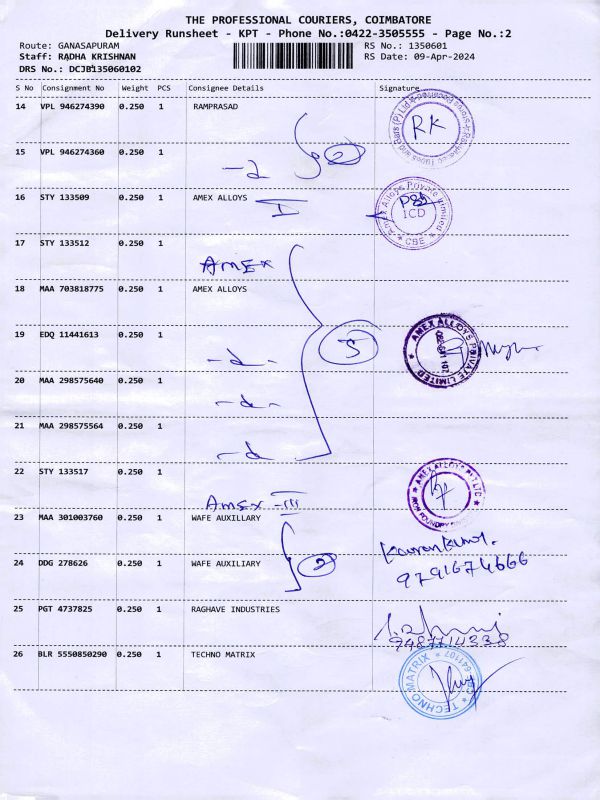 THE PROFESSIONAL COURIERS, COIMBATORE
Delivery Runsheet - KPT - Phone No.:0422-3505555 - Page No.:2
Route: GANASAPURAM RS No.: 1350601
Staff: RADHA KRISHNAN RS Date: 09-Apr-2024
DRS No.: DCJB135060102
S No Consignment No Weight PCS Consignee Details Signature
14 VPL 946274390 0.250 1 RAMPRASAD
RK
15 VPL 946274360 0.250 1
2
16 STY 133509 0.250 1 AMEX ALLOYS I
Amex Alloys Private Limited
ICD
CBE
17 STY 133512 0.250 1
AMEX
18 MAA 703818775 0.250 1 AMEX ALLOYS
19 EDQ 11441613 0.250 1
5
AMEX ALLOYS PRIVATE LIMITED
20 MAA 298575640 0.250 1
21 MAA 298575564 0.250 1
22 STY 133517 0.250 1
Amex III
AMEX ALLOYS PVT LTD
IRON FOUNDRY
23 MAA 301003760 0.250 1 WAFE AUXILLARY
24 DDG 278626 0.250 1 WAFE AUXILIARY
2
9791674666
25 PGT 4737825 0.250 1 RAGHAVE INDUSTRIES
9487714338
26 BLR 5550850290 0.250 1 TECHNO MATRIX
TECHNO MATRIX